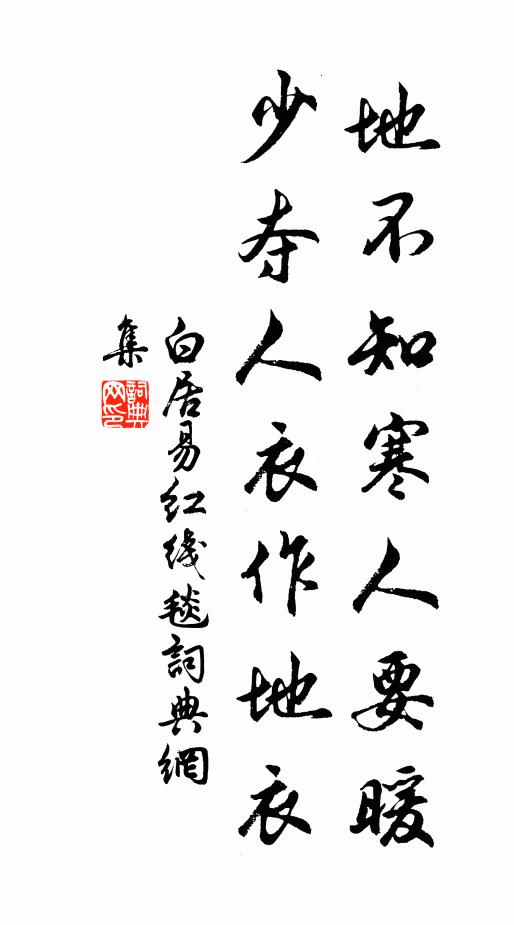 地不知寒人要暖
少夺人衣作地衣
白居易红线毯詞典網
集
詞典網印